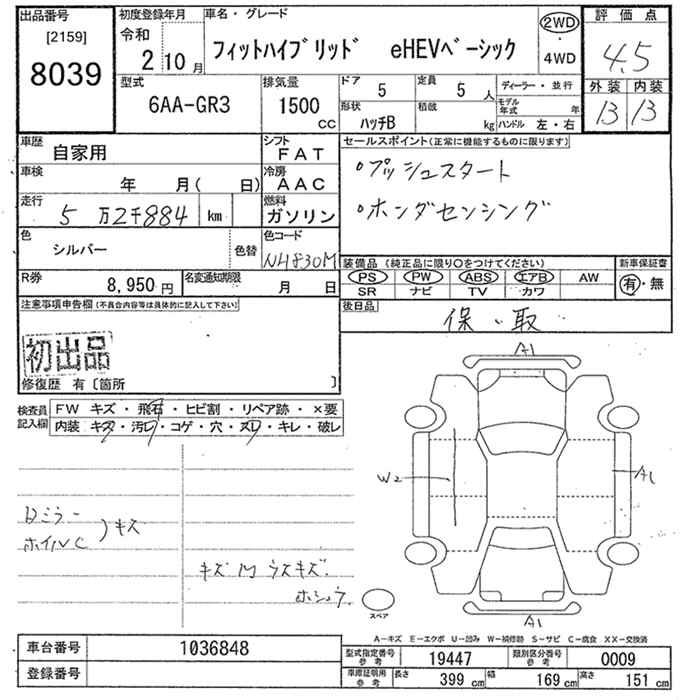 出品番号 [2159] 8039
初度登録年月 令和 2年10月
車名・グレード フィットハイブリッド eHEVベーシック
2WD・4WD
評価点 4.5
型式 6AA-GR3
排気量 1500 CC
ドア 5
定員 5人
形状 ハッチB
積載 kg
ディーラー・並行
モデル年式 年
ハンドル 左・右
外装 内装
13 13
車歴 自家用
シフト FAT
車検 年 月( 日)
冷房 AAC
走行 5万2千884 km
燃料 ガソリン
色 シルバー 色替
色コード NH830M
R券 8,950円
名変通知期限 月 日
セールスポイント(正常に機能するものに限ります)
・プッシュスタート
・ホンダセンシング
装備品(純正品に限り○をつけてください)
PS PW ABS エアB AW
SR ナビ TV カワ
新車保証書
有・無
後日品 保、取
注意事項申告欄(不具合内容等は具体的に記入して下さい)
初出品
修復歴 有〔箇所 〕
検査員記入欄
FW キズ・飛石・ヒビ割・リペア跡・×要
内装 キズ・汚レ・コゲ・穴・スレ・キレ・破レ
ミラー
ホイルC )キズ
キズ 凹 ウスキズ.
A1
W2
A1
A1
スペア
A-キズ E-エクボ U-凹み W-補修跡 S-サビ C-腐食 XX-交換済
車台番号 1036848
登録番号
型式指定番号参考 19447
類別区分番号参考 0009
車庫証明用参考 長さ 399 cm 幅 169 cm 高さ 151 cm